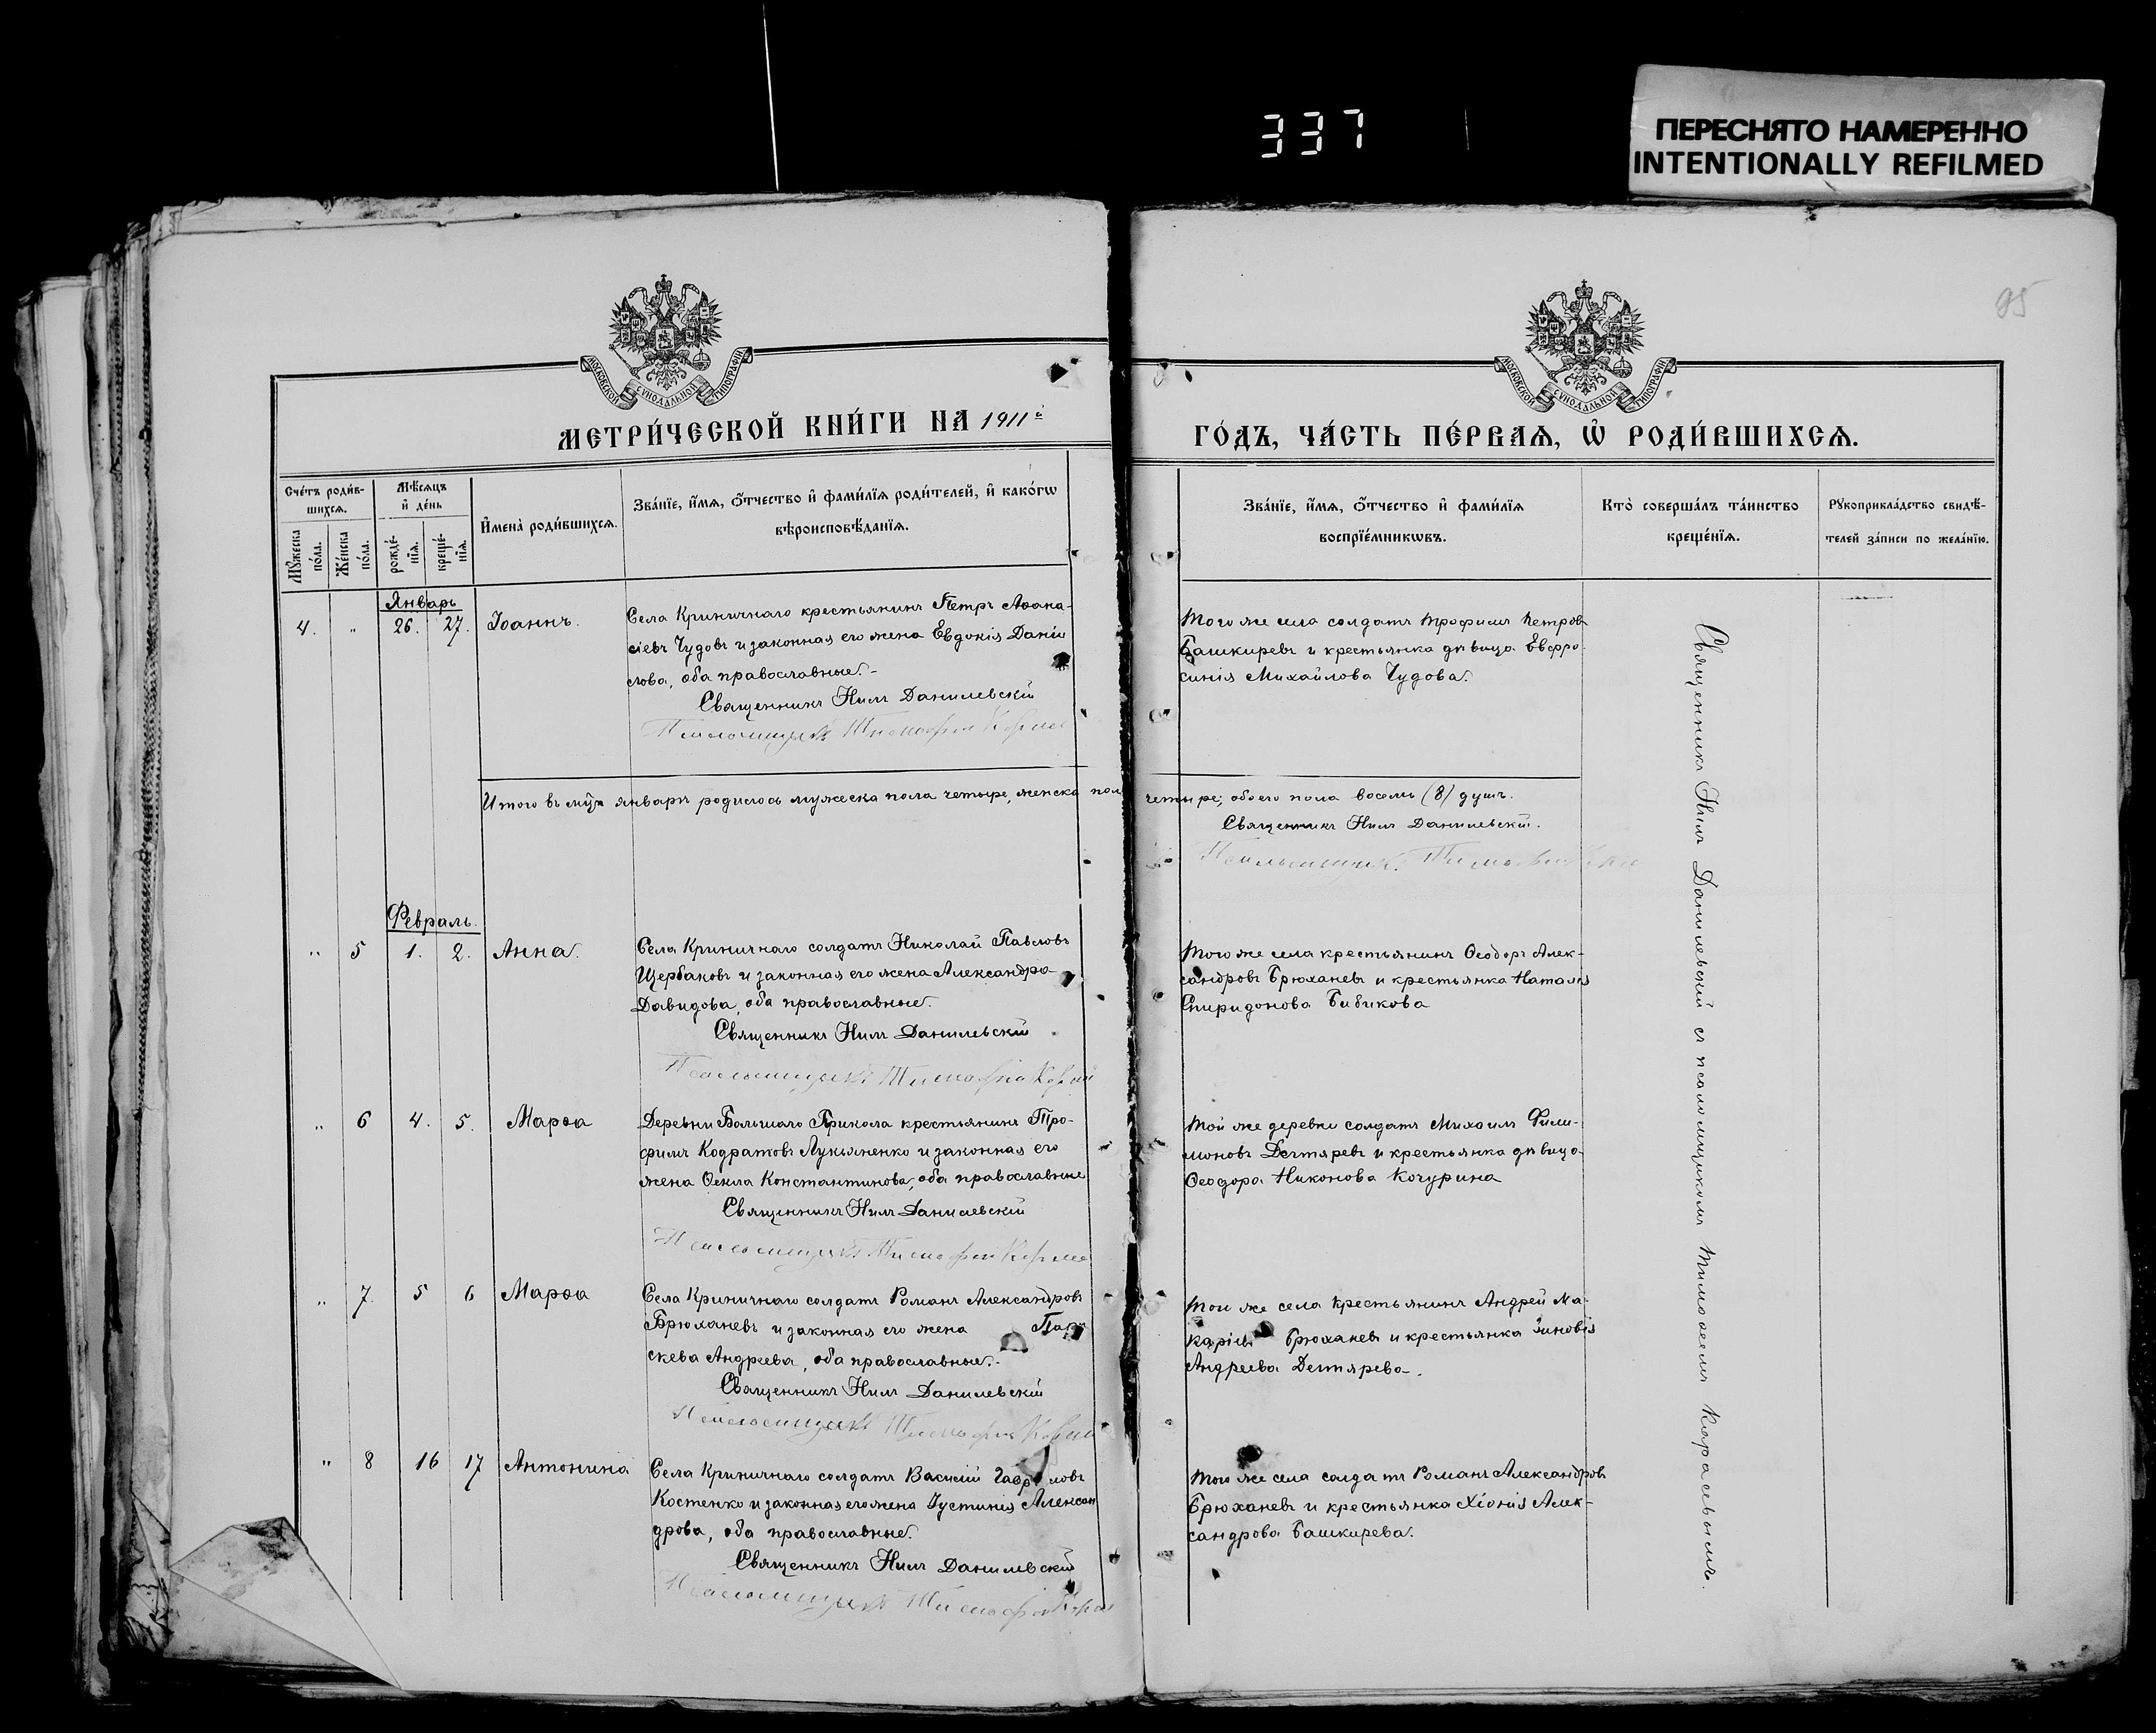 337
ПЕРЕСНЯТО НАМЕРЕННО
INTENTIONALLY REFILMED
95
МОСКОВСКОЙ СУНОДАЛЬНОЙ ТИПОГРАФІИ
МОСКОВСКОЙ СУНОДАЛЬНОЙ ТИПОГРАФІИ
МЕТРИ́ЧЕСКОЙ КНИ́ГИ НА 1911й
ГО́ДЪ, ЧА́СТЬ ПЕ́РВАѦ, Ѡ҆ РОДИ́ВШИХСѦ.
Сче́тъ роди́в-
шихсѧ.
Мѣ́сяцъ
и҆ де́нь
Мꙋ́жеска
по́ла.
Же́нска
по́ла.
рожде́-
нїѧ.
креще́-
нїѧ.
И҆мена̀ роди́вшихсѧ.
Зва́нїе, и҆́мѧ, ѻ҆́тчество и҆ фами́лїѧ роди́телей, и҆ како́гѡ
вѣроисповѣ́данїѧ.
Зва́нїе, и҆́мѧ, ѻ҆́тчество и҆ фами́лїѧ
воспрїе́мникѡвъ.
Кто̀ соверша́лъ та́инство
креще́нїѧ.
Рꙋкоприкла́дство свидѣ́-
телей за́писи по жела́нїю.
Январь
4. " 26. 27. Іоаннъ.
Села Криничнаго крестьянинъ Петръ Аѳана-
сіевъ Чудовъ и законная его жена Евдокія Даніи
лова, оба православные.-
Священникъ Нилъ Данилевскій
Псаломщикъ Тимоѳей
Того же села солдатъ Трофимъ Петровъ
Башкиревъ и крестьянка дѣвица Евфро-
синія Михайлова Чудова.
Итого въ мцѣ январѣ родилось мужеска пола четыре, женска пол
четыре; обоего пола восемь (8) душъ.
Священникъ Нилъ Данилевскій.
Псаломщикъ
Февраль.
" 5 1. 2. Анна.
Села Криничнаго солдатъ Николай Павловъ
Щербаковъ и законная его жена Александра
Давидова, оба православные.
Священникъ Нилъ Данилевскій
Псаломщикъ Тимоѳей
Того же села крестьянинъ Ѳеодоръ Алек-
сандровъ Брюханевъ и крестьянка Наталія
Спиридонова Бибикова
" 6 4. 5. Марѳа
Деревни Большаго Прикола крестьянинъ Тро-
фимъ Кодратовъ Лукьяненко и законная его
жена Ѳекла Константинова, оба православные
Священникъ Нилъ Данилевскій
Псаломщикъ Тимоѳей
Той же деревни солдатъ Михаилъ Фили-
моновъ Дегтяревъ и крестьянка дѣвица
Ѳеодора Никонова Кочурина
" 7. 5 6 Марѳа
Села Криничнаго солдатъ Романъ Александровъ
Брюханевъ и законная его жена Пара
скева Андреева, оба православные.-
Священникъ Нилъ Данилевскій
Псаломщикъ Тимоѳей
Того же села крестьянинъ Андрей Ма-
каріевъ Брюханевъ и крестьянка Зиновія
Андреева Дегтярева.
" 8 16 17 Антонина
Села Криничнаго солдатъ Василій Гавриловъ
Костенко и законная его жена Іустинія Алексан
дрова, оба православные.
Священникъ Нилъ Данилевскій
Псаломщикъ Тимоѳей
Того же села солдатъ Романъ Александровъ
Брюханевъ и крестьянка Хіонія Алек-
сандрова Башкирева.
Священникъ Нилъ Данилевскій съ псаломщикомъ Тимоѳеемъ Карасевымъ.